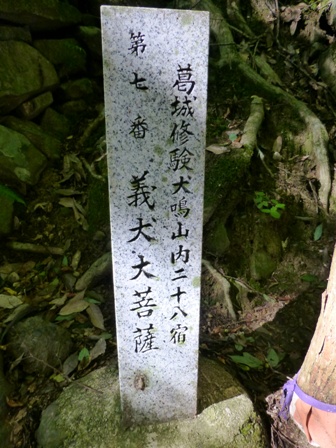 葛城修験犬鳴山内二十八宿
第七番 義犬大菩薩